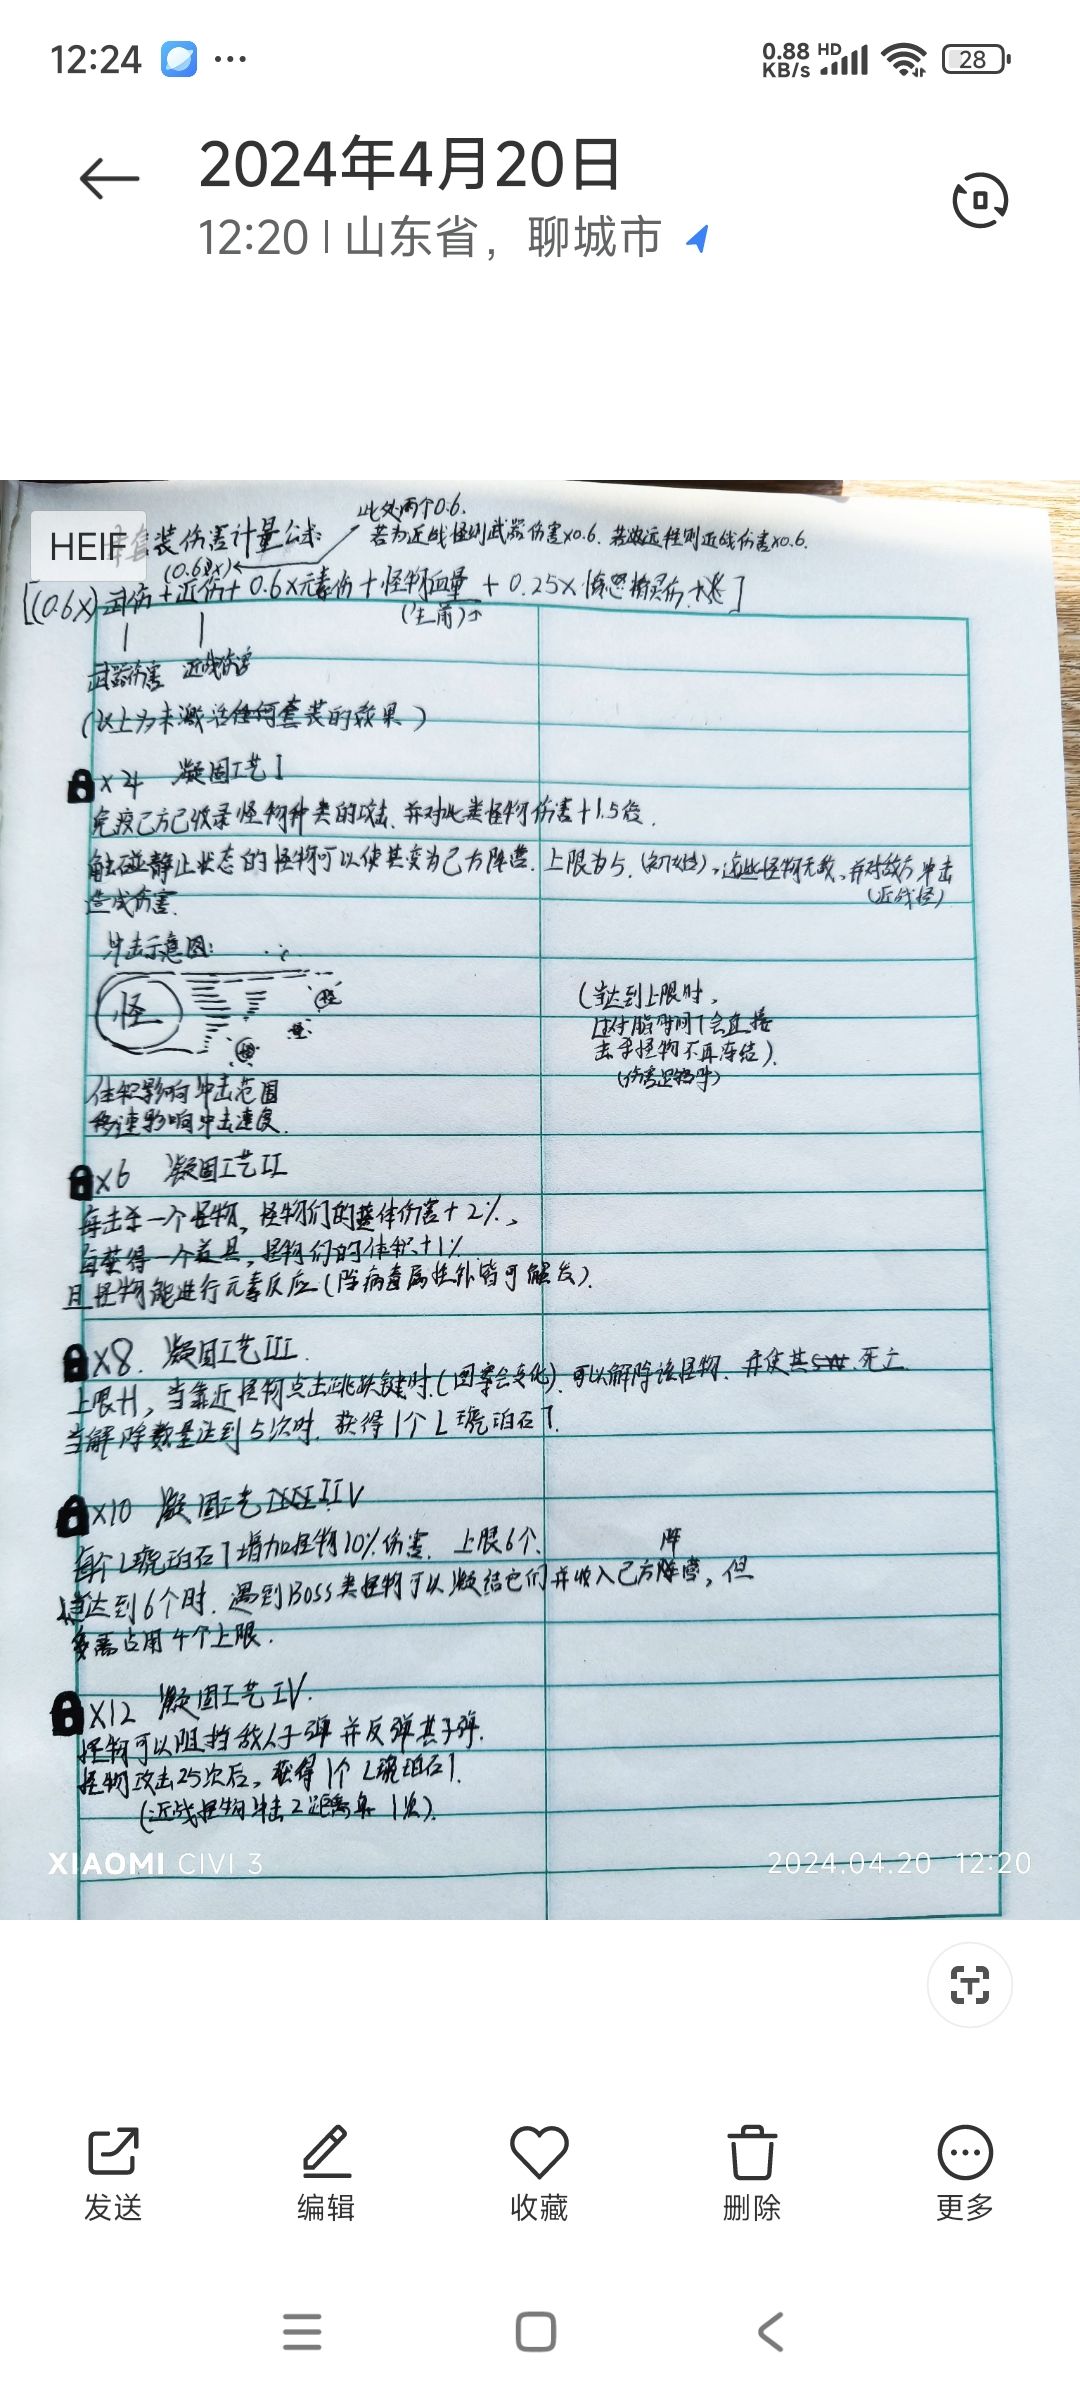 12:24
0.88 KB/s HD 28
2024年4月20日
12:20 | 山东省，聊城市
HEIF
此处两个0.6.
套装伤害计量公式:
若为近战怪则武器伤害x0.6. 若为远程则近战伤害x0.6.
(0.6x)
[(0.6x)武伤+近伤+0.6x元素伤+怪物血量+0.25x愤怒精灵伤
(生前)
武器伤害 近战伤害
(以上为未激活任何套装的效果)
x4 凝固工艺I
免疫己方已收录怪物种类的攻击、并对此类怪物伤害+1.5倍.
触碰静止状态的怪物可以使其变为己方阵营. 上限为5. 这些怪物无敌、并对敌方冲击
(近战怪)
造成伤害.
冲击示意图:
怪
(当达到上限时,
会直接
击杀怪物不再冻结).
体积影响冲击范围
移速影响冲击速度.
x6 凝固工艺II
每击杀一个怪物, 怪物们的整体伤害+2%、
每获得一个道具, 怪物们的体积+1%
且怪物能进行元素反应(除病毒属性外皆可触发).
x8. 凝固工艺III.
上限+1, 当靠近怪物点击跳跃键时.(图案会变化). 可以解除该怪物. 并使其 死亡
当解除数量达到5次时. 获得1个「琥珀石」.
x10 凝固工艺IIV
每个「琥珀石」增加怪物10%伤害. 上限6个.
阵
当达到6个时. 遇到Boss类怪物可以凝结它们并收入己方阵营, 但
需占用4个上限.
x12 凝固工艺IV.
怪物可以阻挡敌人子弹并反弹其子弹.
怪物攻击25次后, 获得1个「琥珀石」.
(近战怪物冲击2距离算1次).
XIAOMI CIVI 3
2024.04.20 12:20
发送 编辑 收藏 删除 更多